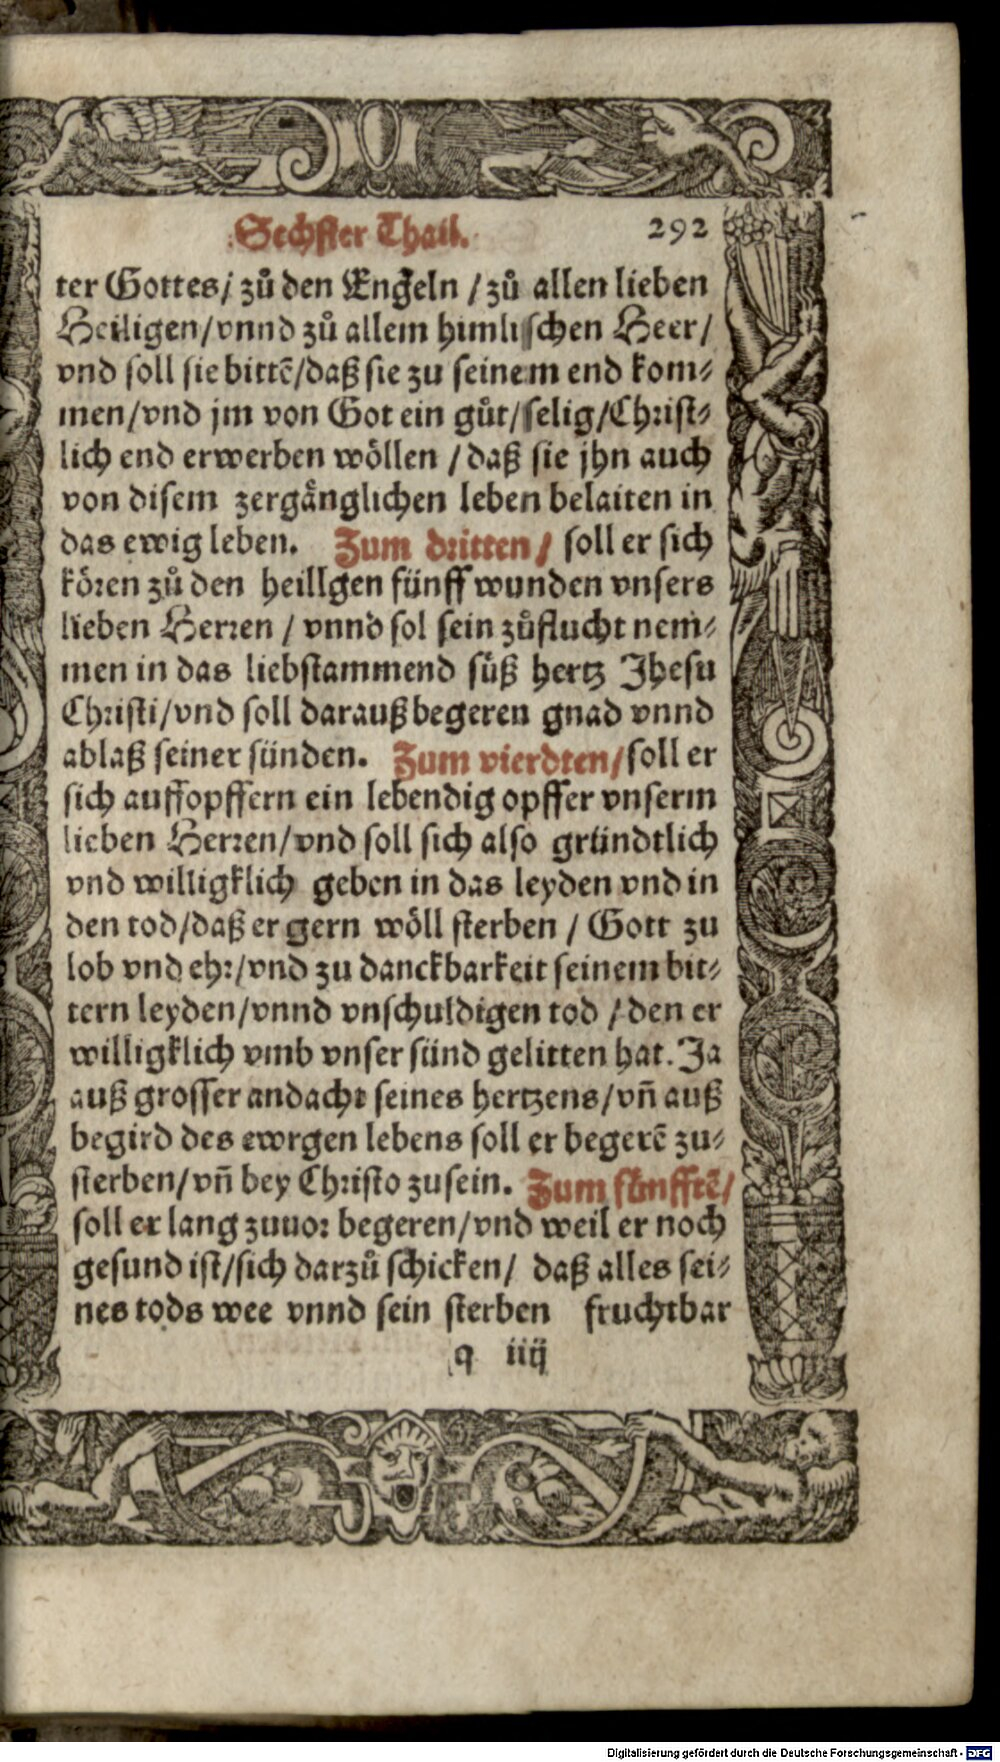 Sechster Thail. 292
ter Gottes/ zů den Engeln / zů allen lieben
Heiligen/vnnd zů allem himlischen Heer/
vnd soll sie bittẽ/daß sie zu seinem end kom⸗
men/vnd jm von Got ein gůt/selig/Christ⸗
lich end erwerben wöllen / daß sie jhn auch
von disem zergånglichen leben belaiten in
das ewig leben. Zum dritten/ soll er sich
kören zů den heillgen fünff wunden vnsers
lieben Herren / vnnd sol sein zůflucht nem⸗
men in das liebstammend süß hertz Jhesu
Christi/vnd soll darauß begeren gnad vnnd
ablaß seiner sünden. Zum vierdten/soll er
sich auffopffern ein lebendig opffer vnserm
lieben Herren/vnd soll sich also gründtlich
vnd willigklich geben in das leyden vnd in
den tod/daß er gern wöll sterben / Gott zu
lob vnd ehr/vnd zu danckbarkeit seinem bit⸗
tern leyden/vnnd vnschuldigen tod / den er
willigklich vmb vnser sünd gelitten hat. Ja
auß grosser andacht seines hertzens/vñ auß
begird des ewrgen lebens soll er begerẽ zu⸗
sterben/vñ bey Christo zusein. Zum fünfftẽ/
soll er lang zuuor begeren/vnd weil er noch
gesund ist/sich darzů schicken/ daß alles sei⸗
nes tods wee vnnd sein sterben fruchtbar
q iiij
Digitalisierung gefördert durch die Deutsche Forschungsgemeinschaft - DFG